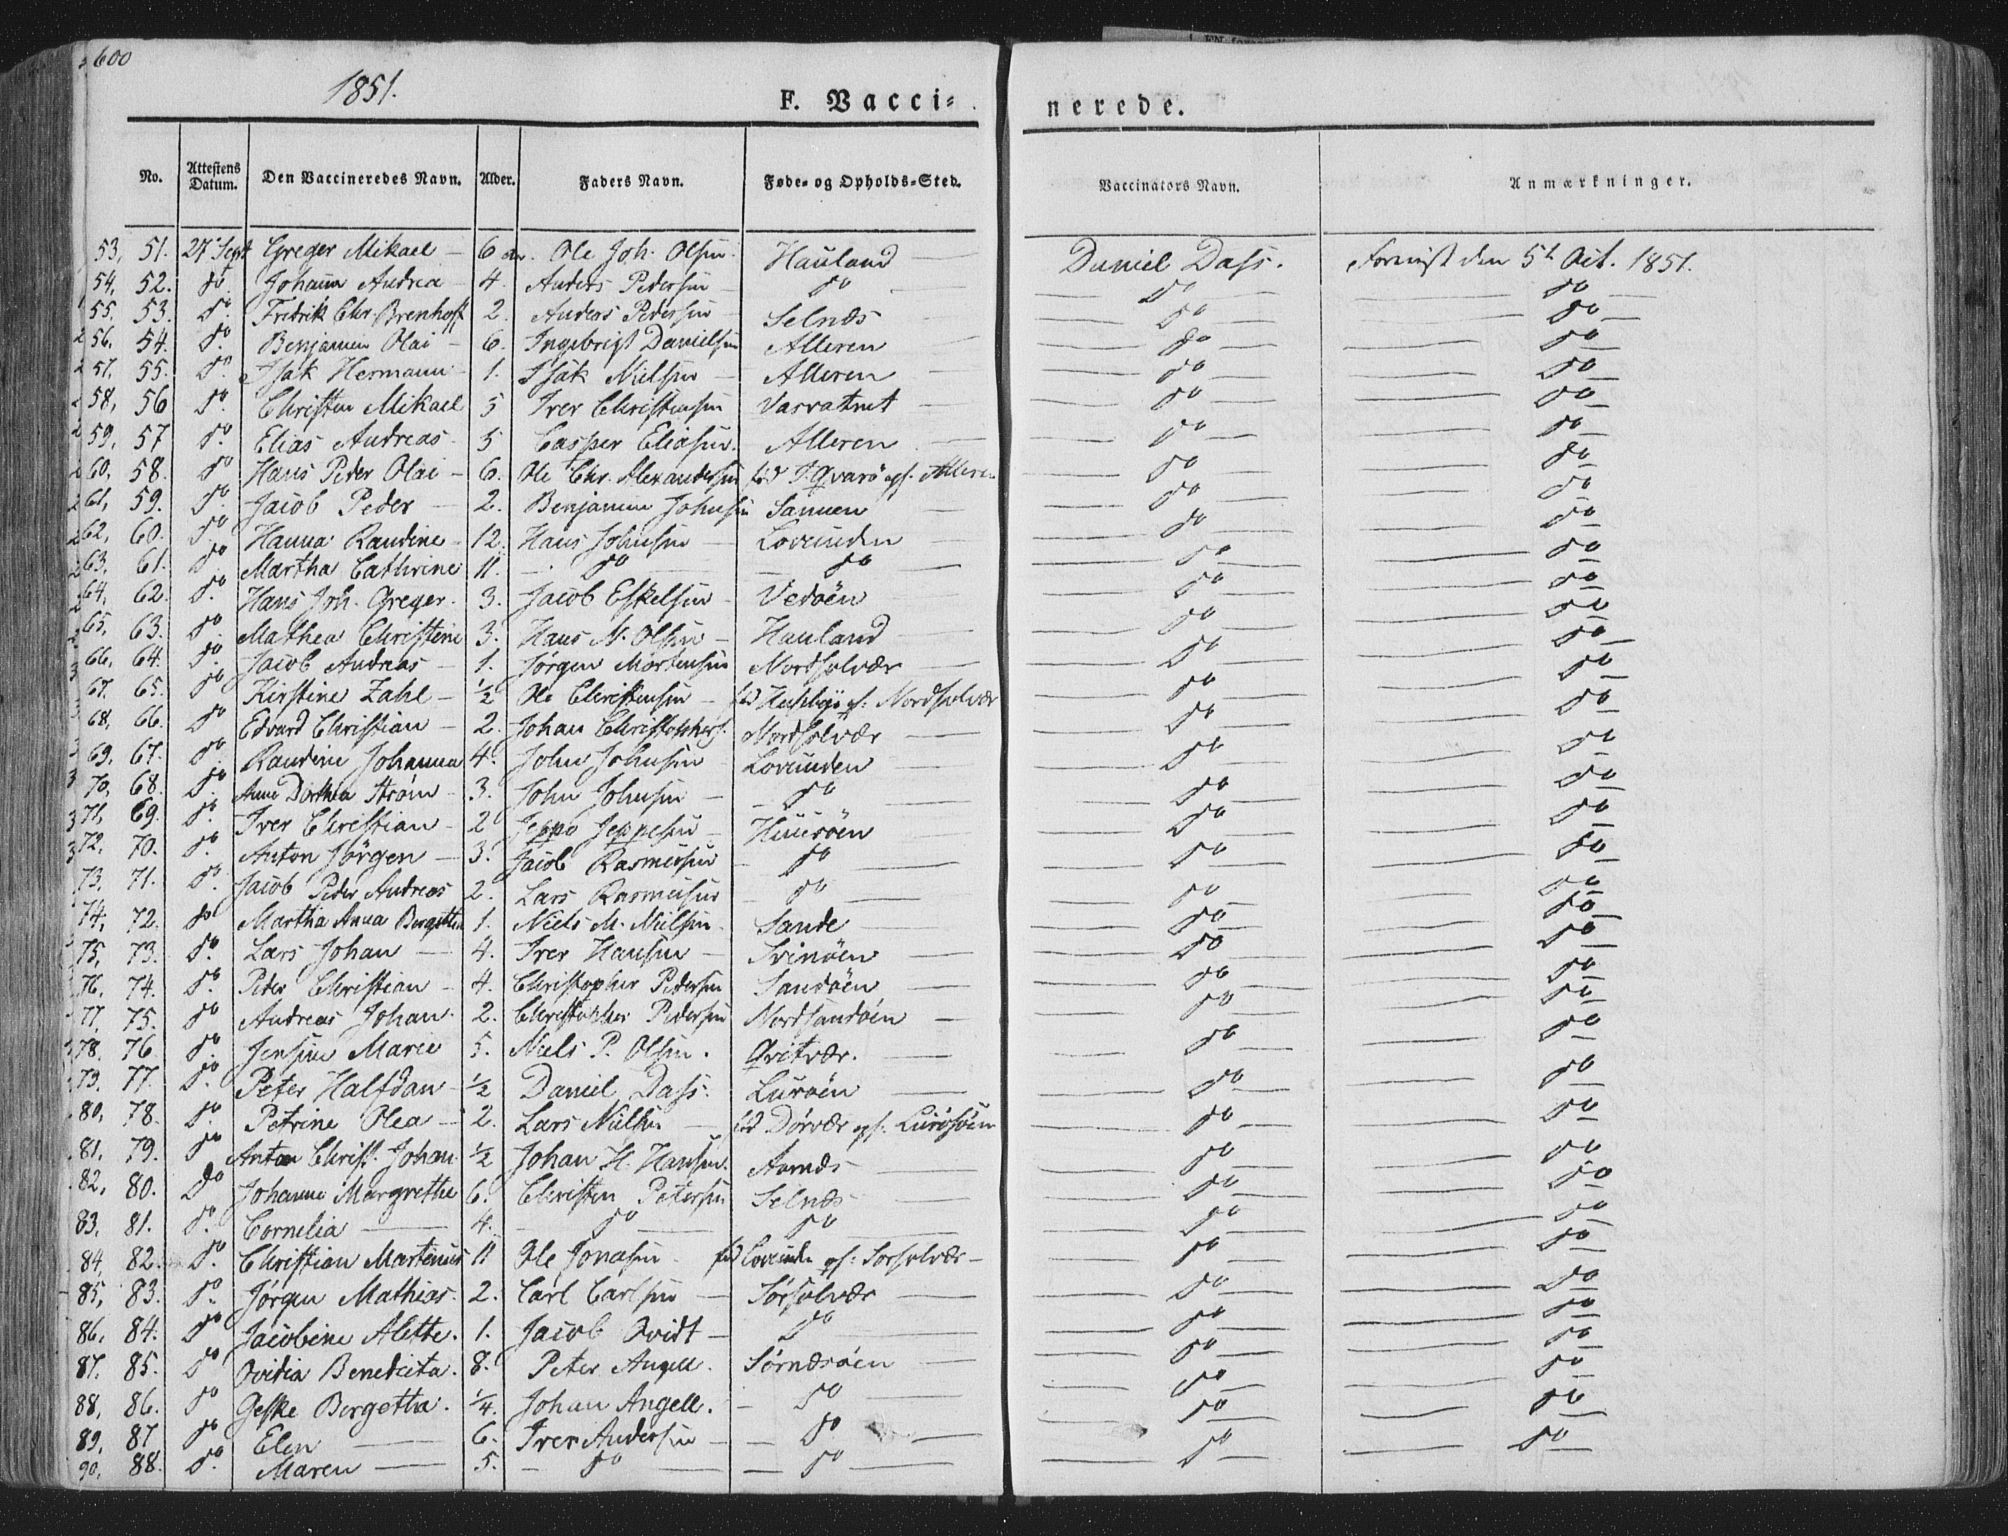 600
1851.
F. Vacci= nerede.
No. Attestens Datum. Den Vaccineredes Navn. Alder. Faders Navn. Føde= og Opholds=Sted. Vaccinators Navn. Anmærkninger.
53, 51. 27 Sept Greger Mikael – 6 Ole Joh. Olsen. Hauland Daniel Dass. den 5t Oct. 1851.
54, 52. do. Johann Andrea 4. Anders Pedersen do do do
55. 53. do. Fredrik Chr. Brenhoff 2. Anders Pedersen Selnæs do do
56, 54. do. Benjamin Olai – 6. Ingebrigt Danielsen Alleren do do
57. 55. do. Isak Hermann 1. Isak Nielsen Alleren do do
58, 56 do. Christen Mikael 5 Iver Christensen Varvatnet do do
59, 57 do. Elias Andreas 5 Casper Eliasen. Alleren do do
60, 58. do Hans Peder Olai – 6. Ole Chr. Alexandersen do do
61, 59. do. Jacob Peder 2. Benjamin Johnsen Sannen do do
62, 60. do Hanna Randine 12. Hans Johnsen Lovunden do do
63, 61. do Martha Cathrine 11. do do do do
64, 62. do. Hans Joh. Greger. 3. Jacob Eskelsen Vedøen do do
65, 63. do Mathea Christine 3. Hans N. Olsen – Hauland do do
66, 64. do. Jacob Andreas 1. Jørgen Mortensen Nordsolvær do do
67. 65. do Kirstine Zahl – ½ Ole Christensen Nordsolvær do do
68, 66. do Edvard Christian – 2. Johan Christophers. Nordsolvær do do
69, 67. do Randine Johanna 4. John Johnsen Lovunden do do
70, 68. do. Anne Dorthea Strøm – 3. John Johnsen – do do do
71, 69. do. Iver Christian – 2 Jeppe Jeppesen – Huusøen do do
72. 70. do. Anton Jørgen – 3. Jacob Rasmussen do do do
73, 71. do. Jacob Peder Andreas 2. Lars Rasmussen do do do
74, 72. do Martha Anna Bergitte 1. Niels M. Nielsen. Sande do do
75, 73. do. Lars Johan 4. Iver Hansen – Svinøen do do
76, 74. do. Peder Christian – 4. Christopher Pedersen Sandøen do do
77, 75. do Andreas Johan. 2. Christopher Pedersen Nordsandøen do do
78. 76. do. Jensine Marie 5. Niels P. Olsen. Qvitvær. do do
79. 77. do. Peter Halfdan ½ Daniel Dass. Lurøen do do
80, 78. do. Petrine Olea – 2. Lars Nielsen Dørvær do do
81. 79. do Anton Christ. Johan ½ Johan H. Hansen. Aarnæs do do
82, 80. do Johanne Margrethe 6. Christen Petersen Selnæs do do
83, 81. do. Cornelia 4. do do do do
84, 82. do. Christian Martinus 11 Ole Jonasen Sørsolvær – do do
85, 83. do. Jørgen Mathias. 2. Carl Carlsen Sørsolvær do do
86, 84. do Jacobine Alette. 1. Jacob Qvidt – do do do
87. 85. do Ovidia Benedicta. 8. Peter Angell. Sørnæsøen do do
88, 86. do Geske Bergetha. ¼. Johan Angell. do do do
89, 87 do Elen 6. Iver Andersen – do do do
90, 88. do. Maren 5. do do do do